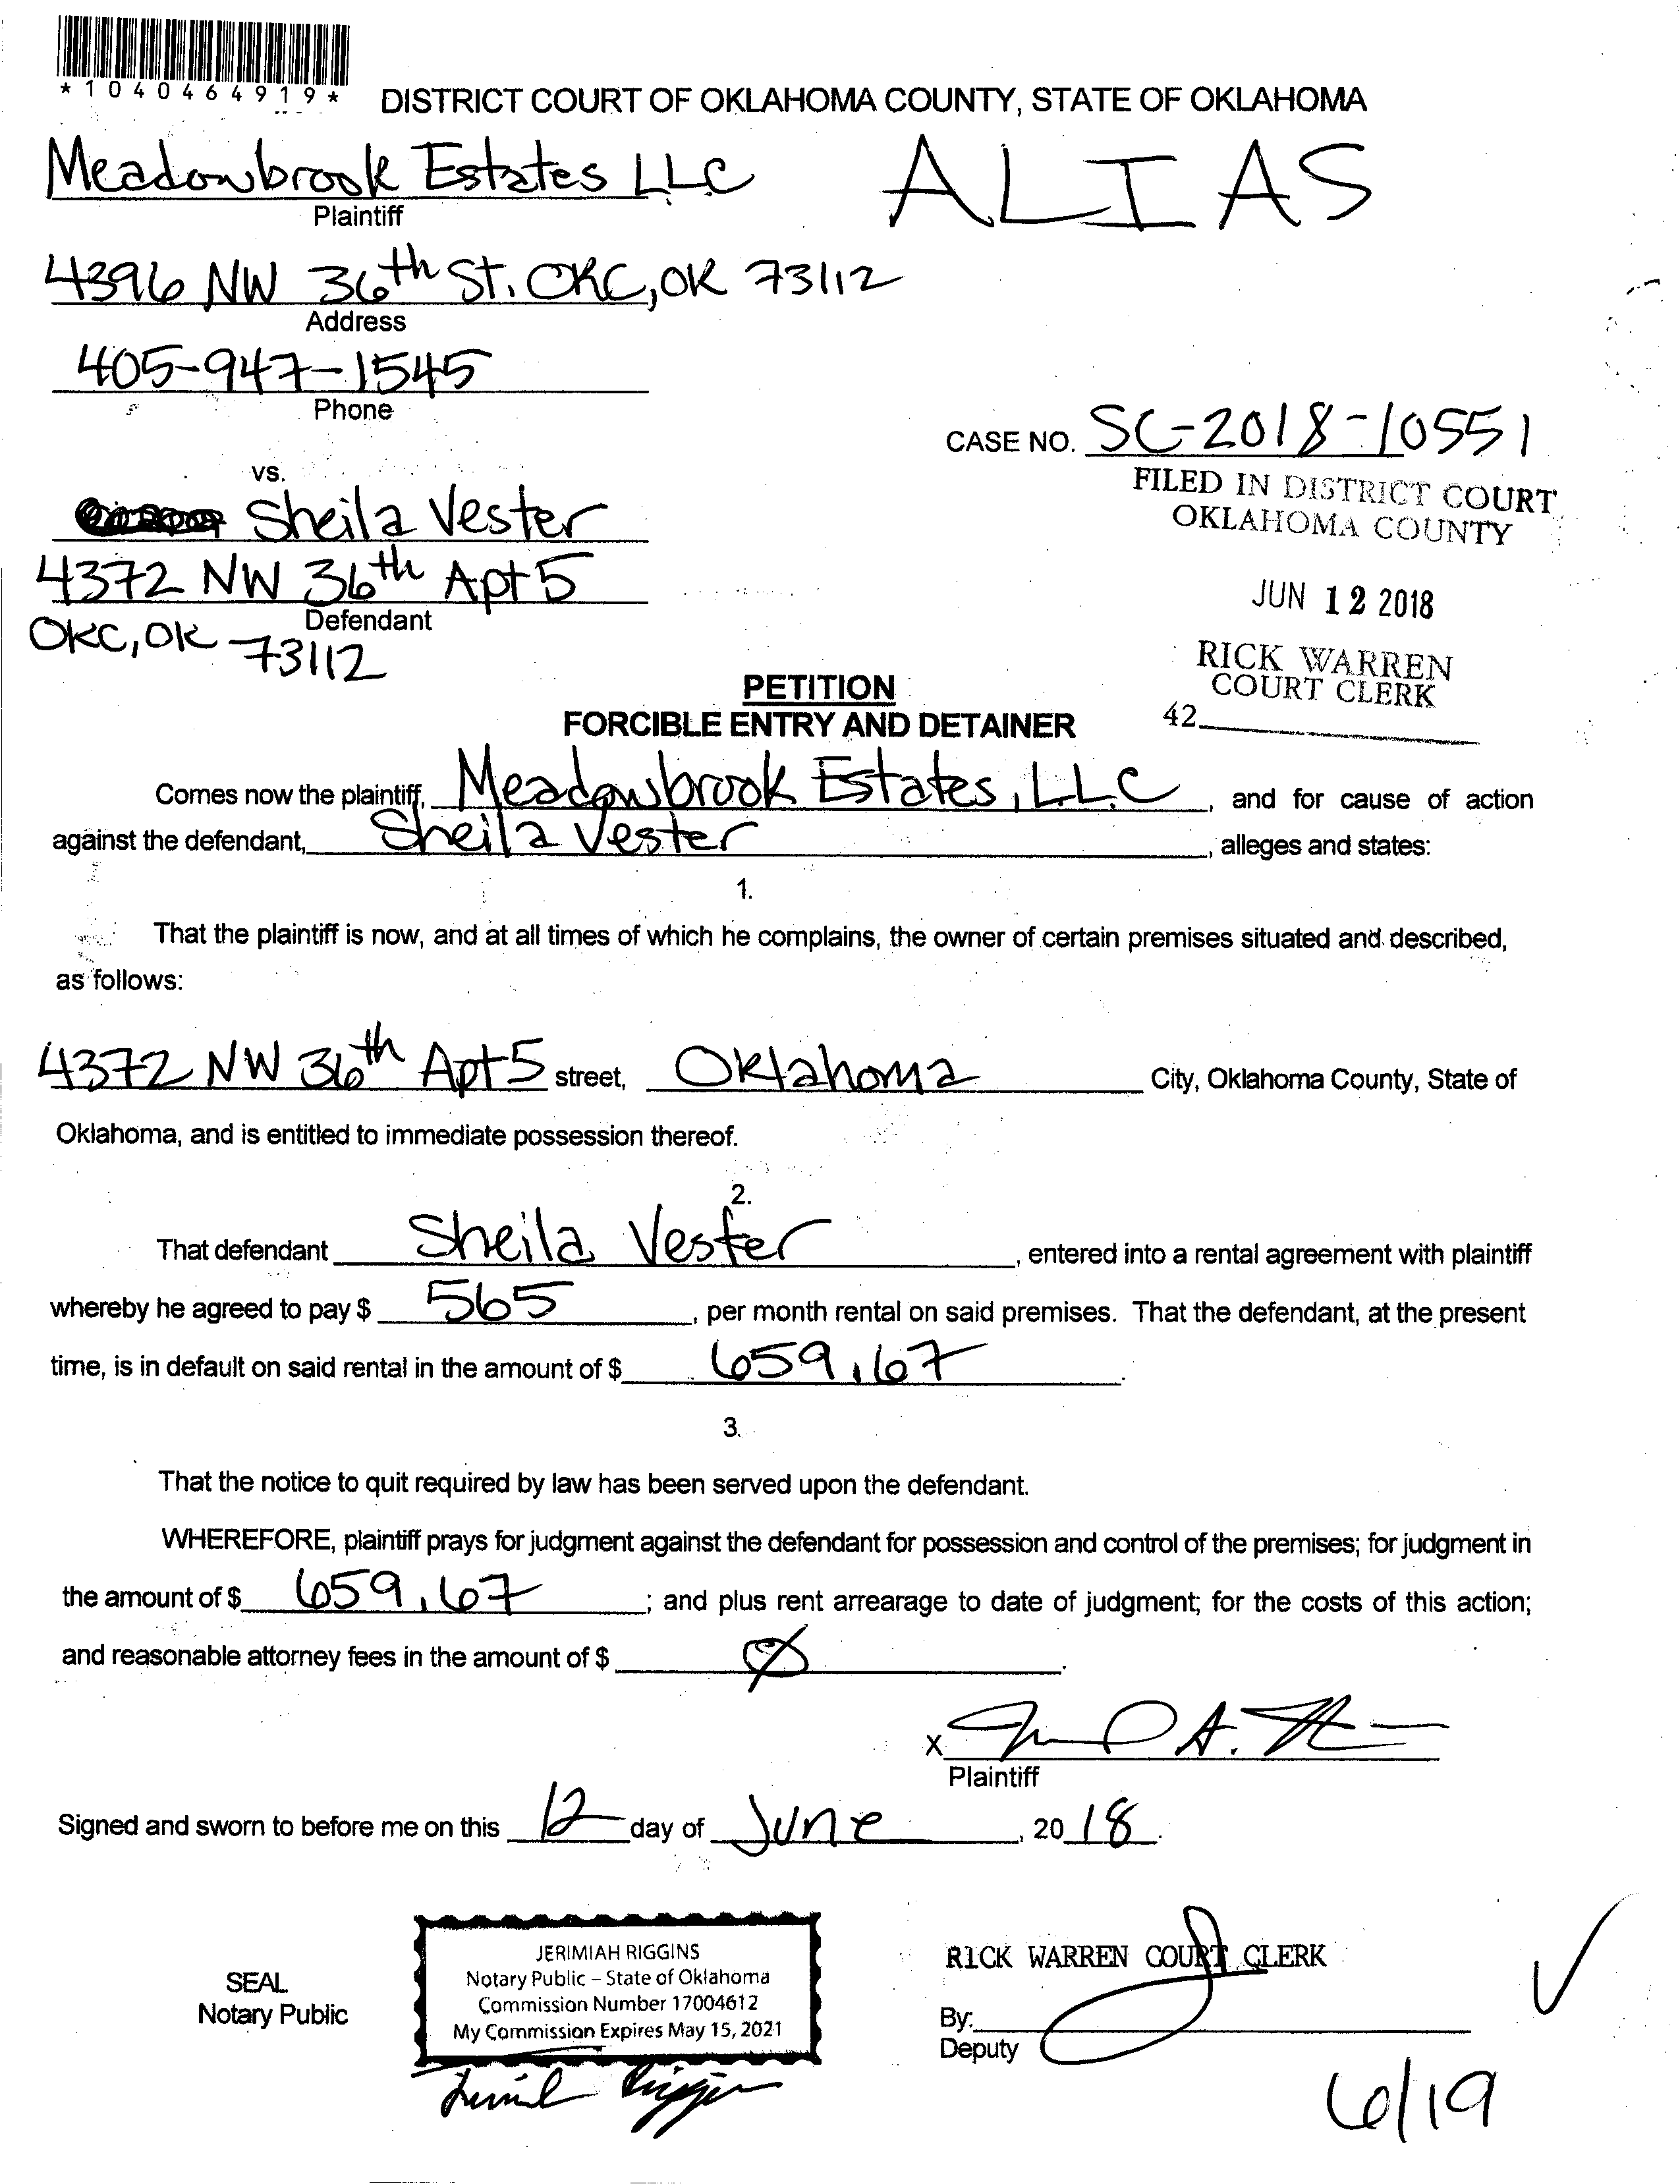 *1040464919*
DISTRICT COURT OF OKLAHOMA COUNTY, STATE OF OKLAHOMA
Meadowbrook Estates LLC
ALIAS
Plaintiff
4396 NW 36th St. OKC, OK 73112
Address
405-947-1545
Phone
CASE NO. SC-2018-10551
vs.
FILED IN DISTRICT COURT
OKLAHOMA COUNTY
Sheila Vester
4372 NW 36th Apt 5
Defendant
OKC, OK 73112
JUN 12 2018
RICK WARREN
COURT CLERK
42
PETITION
FORCIBLE ENTRY AND DETAINER
Comes now the plaintiff, Meadowbrook Estates, LLC, and for cause of action
against the defendant, Sheila Vester, alleges and states:
1.
That the plaintiff is now, and at all times of which he complains, the owner of certain premises situated and described,
as follows:
4372 NW 36th Apt 5 street, Oklahoma City, Oklahoma County, State of
Oklahoma, and is entitled to immediate possession thereof.
2.
That defendant Sheila Vester, entered into a rental agreement with plaintiff
whereby he agreed to pay $ 565, per month rental on said premises. That the defendant, at the present
time, is in default on said rental in the amount of $ 659.67.
3.
That the notice to quit required by law has been served upon the defendant.
WHEREFORE, plaintiff prays for judgment against the defendant for possession and control of the premises; for judgment in
the amount of $ 659.67; and plus rent arrearage to date of judgment; for the costs of this action;
and reasonable attorney fees in the amount of $ Ø.
X
Plaintiff
Signed and sworn to before me on this 12 day of June, 2018.
JERIMIAH RIGGINS
Notary Public – State of Oklahoma
Commission Number 17004612
My Commission Expires May 15, 2021
SEAL
Notary Public
RICK WARREN COURT CLERK
By:
Deputy
6/19